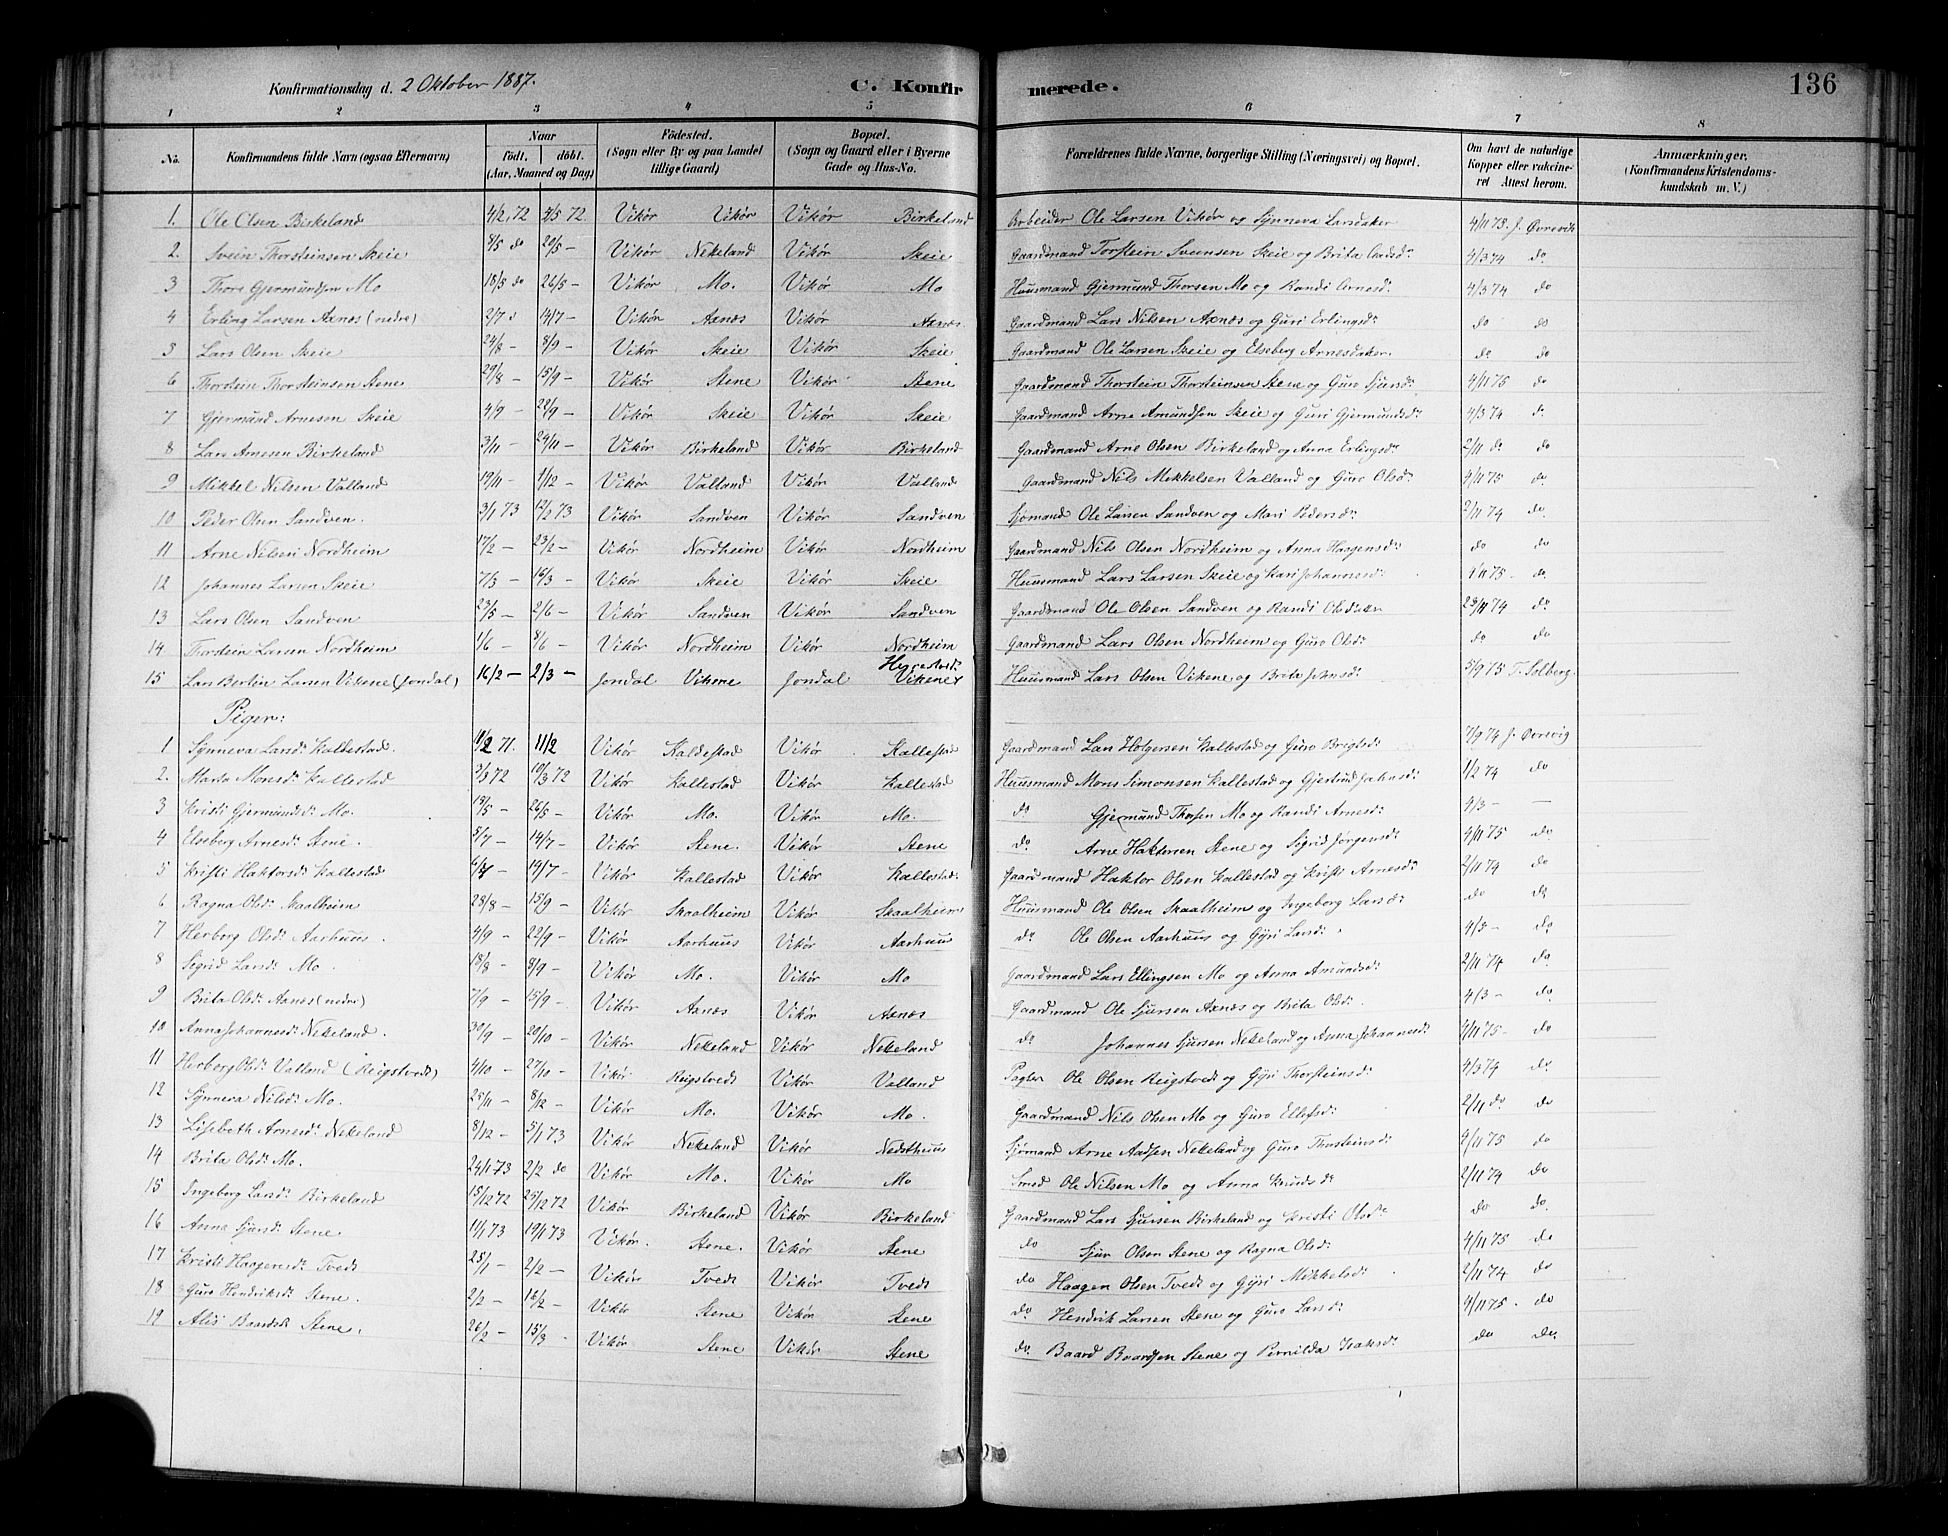 Konfirmationsdag d. 2 Oktober 1887. C. Konfirmerede. 136
1 2 3 4 5 6 7 8
No. Konfirmandens fulde Navn (ogsaa Efternavn) Naar födt. döbt. (Aar, Maaned og Dag) Födested. (Sogn eller By og paa Landet tillige Gaard) Bopæl. (Sogn og Gaard eller i Byerne Gade og Hus-No. Forældrenes fulde Navne, borgerlige Stilling (Næringsvei) og Bopæl. Om havt de naturlige Kopper eller vakcineret Attest herom. Anmærkninger. (Konfirmandens Kristendomskundskab m. V.)
1. Ole Olsen Birkeland 4/2, 72 4/5 72 Vikör Vikör Vikör Birkeland Arbeider Ole Larsen Vikör og Synneva Larsdatter 4/11 75. J. Øvrevik
2. Svein Thorsteinsen Skeie 8/5 do 20/5 – Vikör Nekeland Vikör Skeie Gaardmand Torstein Svensen Skeie og Brita 4/3 74 do
3 Thore Gjermundsen Mo 18/5 do 26/5 – Vikör Mo. Vikör Mo Huusmand Gjermund Thorsen Mo og Randi Arnesdr 4/3 74 do
4 Erling Larsen Axnæs (nedre) 2/7 14/7 – Vikör Axnæs Vikör Axnæs Gaardmand Lars Nilsen Axnæs og Guri Erlingsdr do do
5 Lars Olsen Skeie 24/8 – 8/9 – Vikör Skeie Vikör Skeie Gaardmand Ole Larsen Skeie og Elseberg Arnesdatter do do
6 Thorstein Thorsteinsen Stene 29/8 – 15/9 – Vikör Stene Vikör Stene Gaardmand Thorstein Thorsteinsen Stene og Guro Sjursdr 4/11 75 do
7 Gjermund Arnesen Skeie 4/9 – 22/9 – Vikör Skeie Vikör Skeie Gaardmand Arne Amundsen Skeie og Guri Gjermundsdr 4/3 74 do
8 Lars Arnesen Birkeland 3/11 – 24/11 – Vikör Birkeland Vikör Birkeland Gaardmand Arne Olsen Birkeland og Anna Erlingsdr 2/11 do do
9 Mikkel Nilsen Valland 19/11 – 1/12 – Vikör Valland Vikör Valland Gaardmand Nils Mikkelsen Valland og Guro Olsdr 4/11 75 do
10 Peder Olsen Sandven. 3/1 73 12/2 73 Vikör Sandven Vikör Sandven Sjömand Ole Larsen Sandven og Mari Pedersdr 2/11 74 do
11 Arne Nilsen Nordheim 17/2 – 23/2 – Vikör Nordheim Vikör Nordheim Gaardmand Nils Olsen Nordheim og Anna Haagensdr do do
12 Johannes Larsen Skeie 7/3 – 16/3 – Vikör Skeie Vikör Skeie Huusmand Lars Larsen Skeie og Kari Johannesdr 4/11 75 – do
13 Lars Olsen Sandven 23/5 – 2/6 – Vikör Sandven Vikör Sandven Gaardmand Ole Olsen Sandven og Randi Olsdatter 23/11 74 do
14 Thorstein Larsen Nordheim 1/6 – 8/6 – Vikör Nordheim Vikör Nordheim Gaardmand Lars Olsen Nordheim og Guro Olsdr do do
15 Lars Bertin Larsen Vikene (Jondal) 16/2 – 2/3 – Jondal Vikene Jondal Vikene Huusmand Lars Olsen Vikene og Brita Johnsdr 5/9 75 T. Solberg.
Piger:
1 Synneva Larsdr Kallestad. 11/2 71. 11/2 Vikör Kaldestad Vikör Kallestad Gaardmand Lars Holgersen Kallestad og Guro Brigtsdr 7/9 74 J. Øvrevig
2. Marta Monsdr Kallestad 3/3 72 10/3 72 Vikör Kallestad Vikör Kallestad Huusmand Mons Simonsen Kallestad og Gjertrud Johnsdr 1/2 74 do
3 Kristi Gjermundsdr Mo. 18/5 – 26/5 – Vikör Mo. Vikör Mo. do Gjermund Thorsen Mo og Randi Arnesdr 4/3 – –
4 Elseberg Arnesdr Stene. 5/7 – 14/7 – Vikör Stene. Vikör Stene do. Arne Haktorsen Stene og Sigrid Jörgensdr 4/11 75 do
5 Kristi Haktorsdr Kallestad 6/7 – 19/7 – Vikör Kallestad Vikör Kallestad. Gaardmand Haktor Olsen Kallestad og Kristi Arnesdr 2/11 74 do
6 Ragna Olsdr Skaalheim 28/8 – 15/9 – Vikör Skaalheim Vikör Skaalheim Huusmand Ole Olsen Skaalheim og Ingeborg Larsdr do do
7 Herborg Olsdr Aarhuus. 4/9 – 22/9 – Vikör Aarhuus Vikör Aarhuus do. Ole Olsen Aarhuus og Gyri Larsdr 4/3 – do
8 Sigrid Larsdr Mo. 18/8 – 8/9 – Vikör Mo. Vikör Mo Gaardmand Lars Ellingsen Mo og Anna Amundsdr 2/11 74 do
9 Brita Olsdr Axnæs (nedre) 7/9 – 15/9 – Vikör Axnæs Vikör Axnæs Gaardmand Ole Sjursen Axnæs og Brita Olsdr 4/3 – do
10 Anna Johannesdr Nekeland. 30/9 – 20/10 – Vikör Nekeland Vikör Nekeland do Johannes Sjursen Nekeland og Anna Johannesdr 4/11 75 – do
11 Herborg Olsdr Valland (Reigstvedt) 4/10 – 27/10 – Vikör Reigstvedt Vikör Valland Ole Olsen Reigstvedt og Gyri Thorsteinsdr 4/3 74 do
12 Synneva Nilsdr Mo. 25/11 – 8/12 – Vikör Mo. Vikör Mo. Gaardmand Nils Olsen Mo og Guro Ellefsdr 2/11 do do
13 Lisebeth Arnesdr Nekeland 8/12 – 5/1 73 Vikör Nekeland Vikör Nedsthuus Sjömand Arne Aadsen Nekeland og Guro Thorsteinsdr 4/11 75 do
14 Brita Olsdr Mo. 24/1 73 2/2 do Vikör Mo. Vikör Mo Smed Ole Nilsen Mo og Anna Knudsdr 2/11 74 do
15 Ingeborg Larsdr Birkeland 15/12 72 25/12 72 Vikör Birkeland Vikör Birkeland Gaardmand Lars Sjursen Birkeland og Kristi Olsdr do do
16 Anna Sjursdr Stene 11/1 73 19/1 73 Vikör. Stene. Vikör Stene do Sjur Olsen Stene og Ragna Olsdr 4/11 75 do
17 Kristi Haagensdr Tvedt 25/1 – 2/2 – Vikör Tvedt Vikör Tvedt do Haagen Olsen Tvedt og Gyri Mikkelsdr 2/11 74 do
18 Guro Hendriksdr Stene. 2/2 – 16/2 – Vikör Stene Vikör Stene do. Hendrik Larsen Stene og Guro Larsdr 4/11 75. do
19 Alis Baardsdr Stene. 26/2 – 15/3 – Vikör Stene Vikör Stene do. Baard Baardsen Stene og Pernilda Isaksdr do do